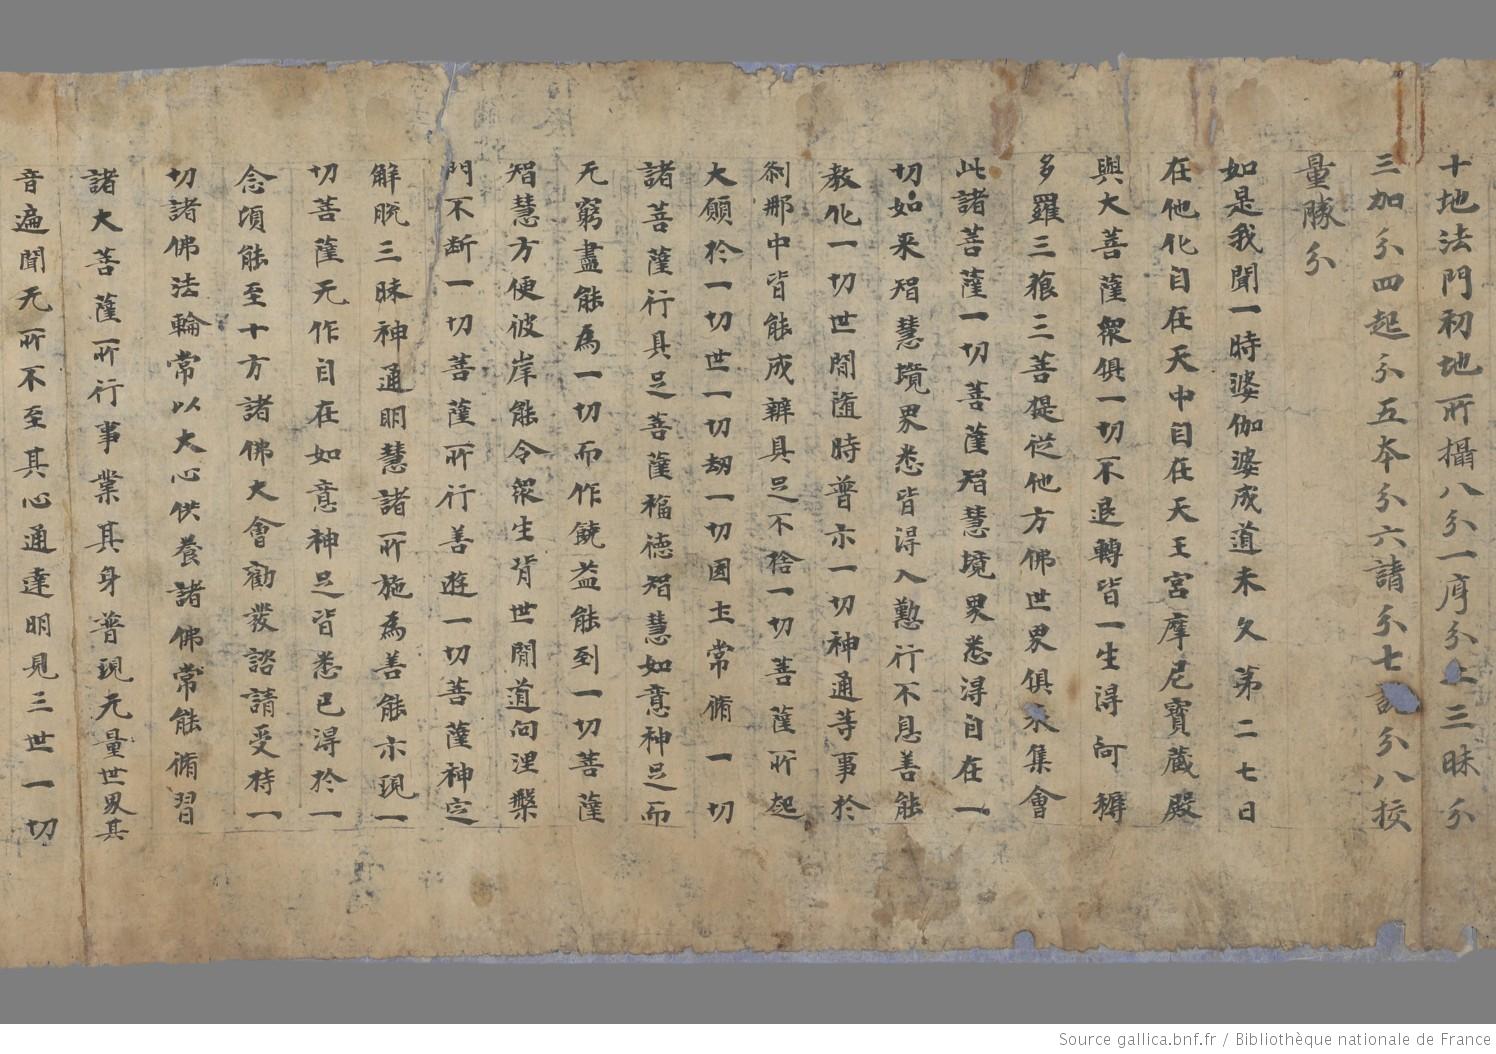 十地法門初地所攝八分一序分二三昧分
三加分四起分五本分六請分七說分八挍
量勝分
如是我聞一時婆伽婆成道未久第二七日
在他化自在天中自在天王宮摩尼寶藏殿
與大菩薩衆俱一切不退轉皆一生得阿耨
多羅三藐三菩提從他方佛世界俱來集會
此諸菩薩一切菩薩智慧境界悉得自在一
切如来智慧境界悉皆得入懃行不息善能
教化一切世間隨時普示一切神通等事於
刹那中皆能成辦具足不捨一切菩薩所起
大願於一切世一切劫一切国土常脩一切
諸菩薩行具足菩薩福德智慧如意神足而
无窮盡能為一切而作饒益能到一切菩薩
智慧方便彼岸能令衆生背世間道向涅槃
門不断一切菩薩所行善遊一切菩薩神定
解脫三昧神通明慧諸所施為善能示現一
切菩薩无作自在如意神足皆悉已得於一
念頃能至十方諸佛大會勸發諮請受持一
切諸佛法輪常以大心供養諸佛常能脩習
諸大菩薩所行事業其身普現无量世界其
音遍聞无所不至其心通達明見三世一切
Source gallica.bnf.fr / Bibliothèque nationale de France